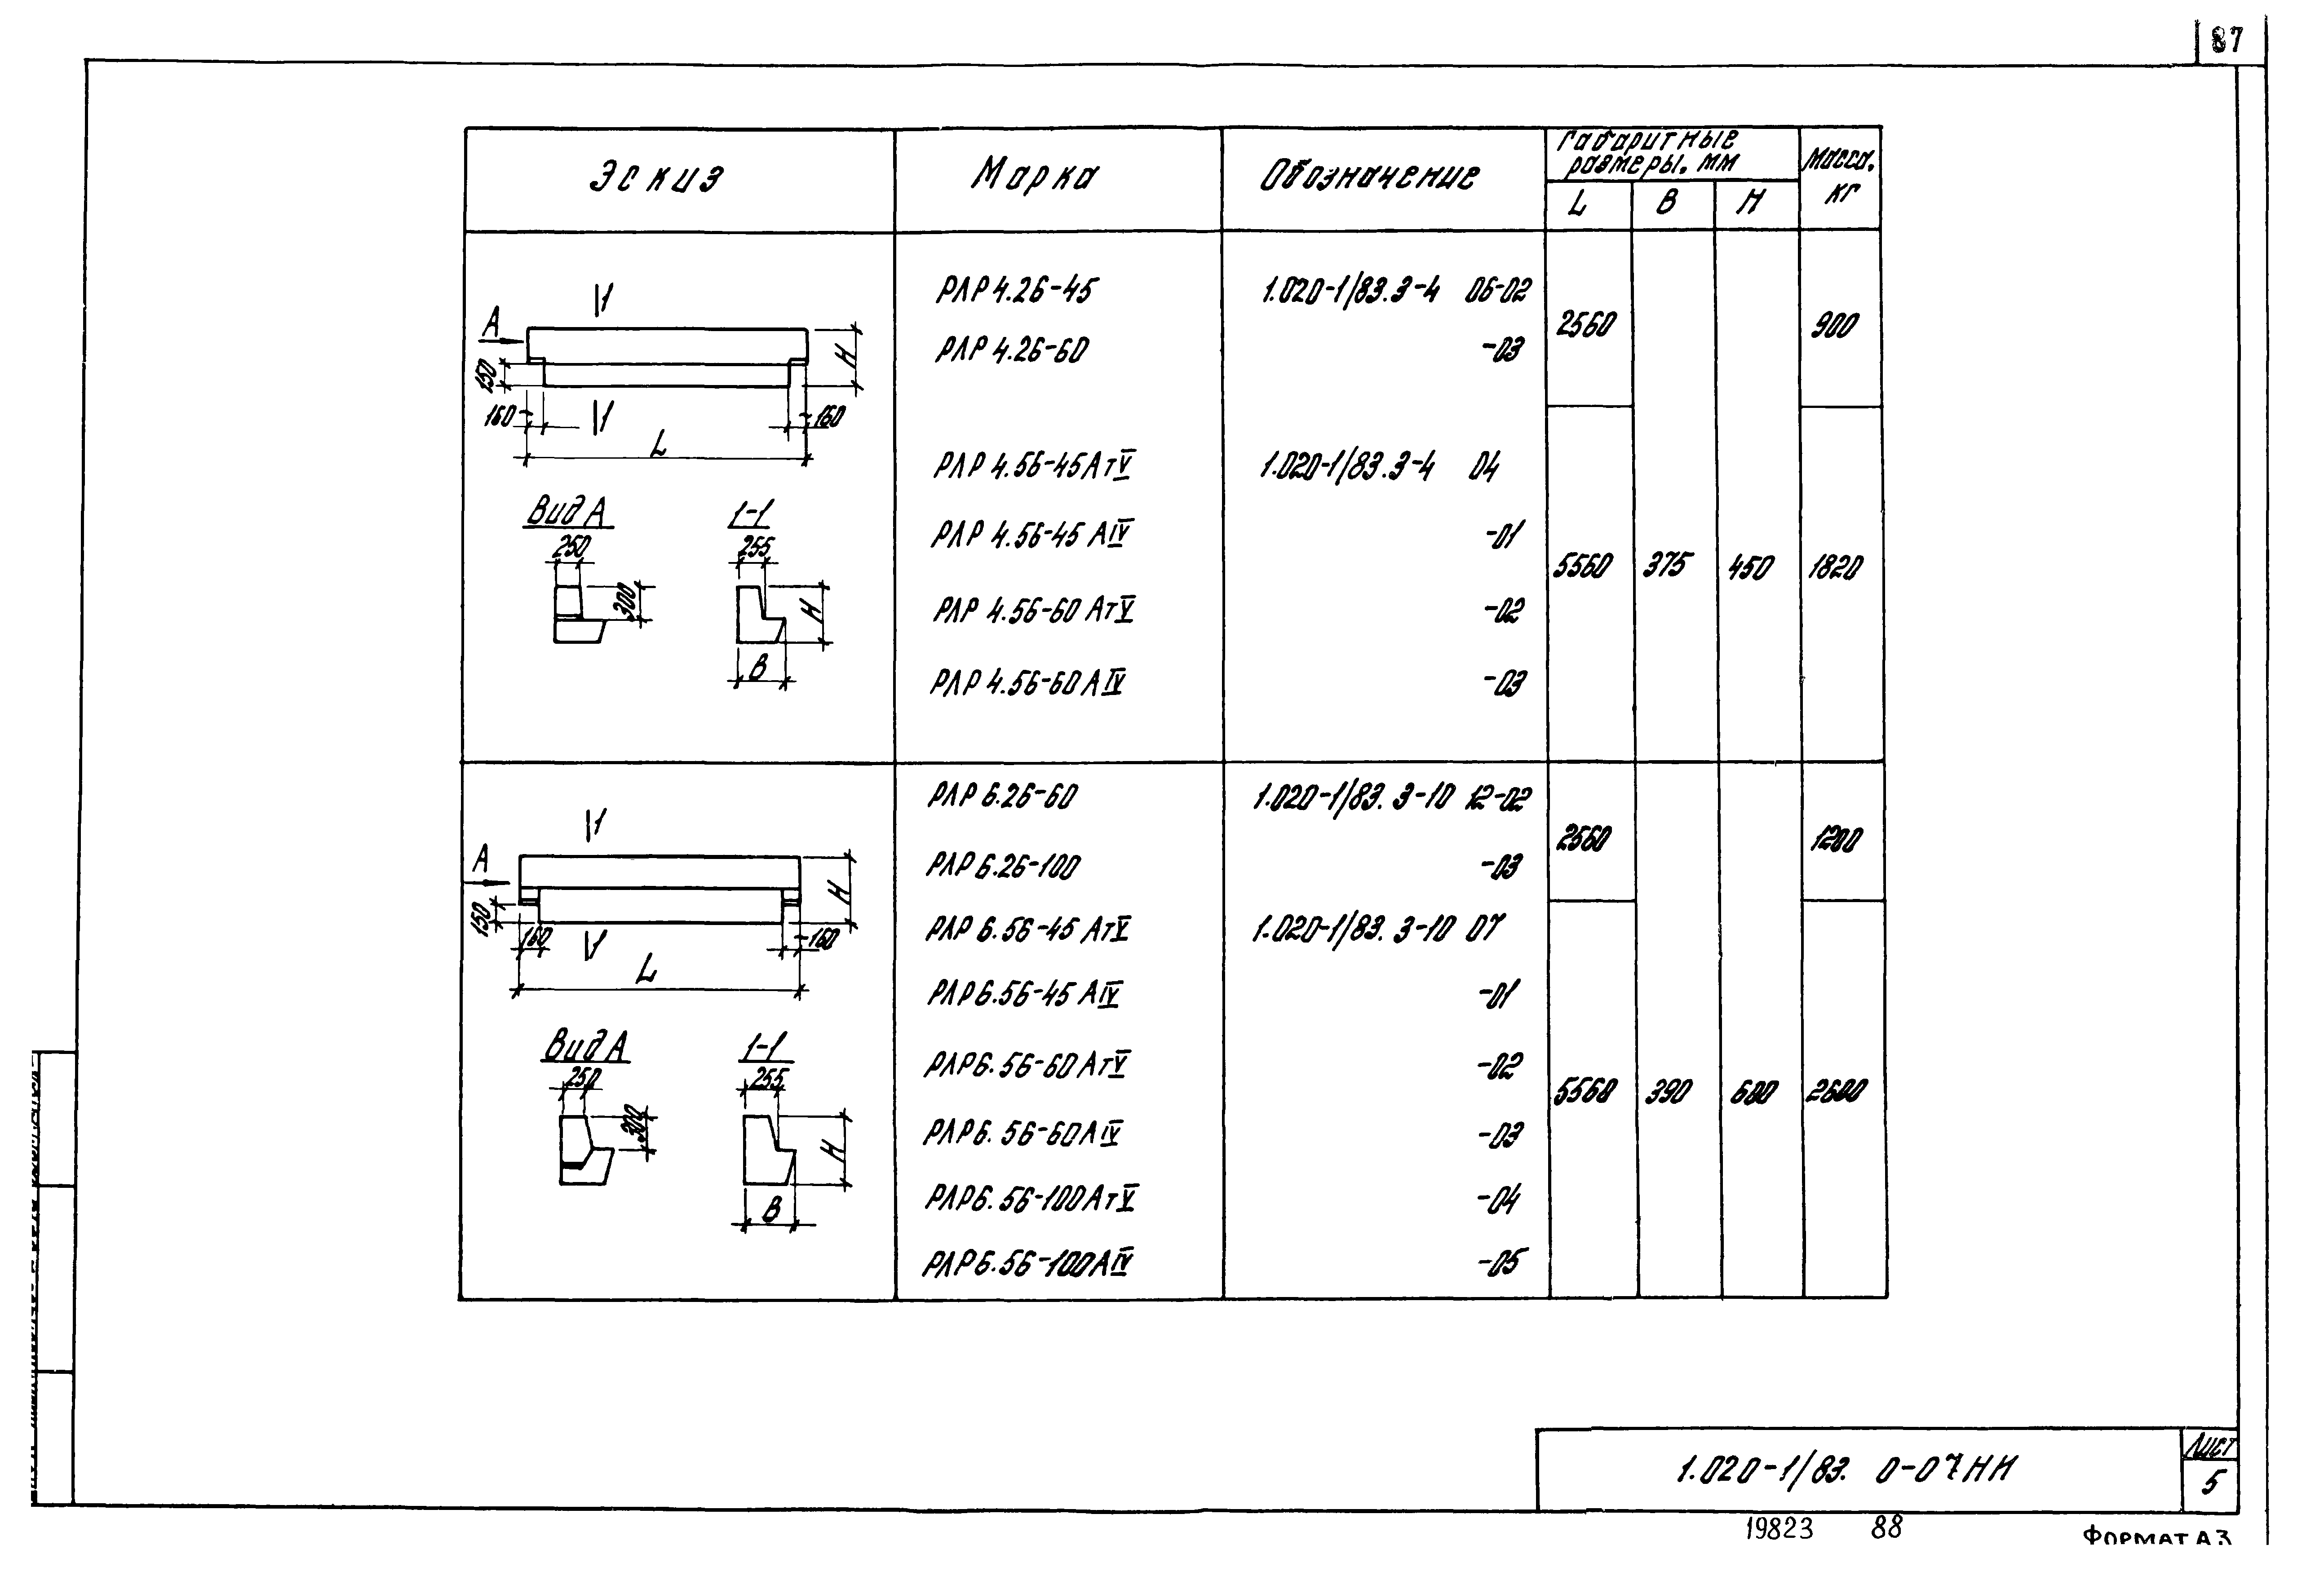 87
Эскиз
Марка
Обозначение
Габаритные
размеры, мм
Масса,
кг
L
В
Н
РЛР 4.26-45 1.020-1/83.3-4 06-02
РЛР 4.26-60 -03
2560
900
РЛР 4.56-45АтV 1.020-1/83.3-4 04
РЛР 4.56-45 АIV -01
РЛР 4.56-60 АтV -02
РЛР 4.56-60 АIV -03
5560 375 450 1820
1
А
Н
150
160
1
160
L
Вид А
1-1
250
255
300
Н
В
РЛР 6.26-60 1.020-1/83. 3-10 12-02
РЛР 6.26-100 -03
2560
1200
РЛР 6.56-45 АтV 1.020-1/83. 3-10 07
РЛР 6.56-45 АIV -01
РЛР 6.56-60 АтV -02
РЛР 6.56-60 АIV -03
РЛР 6.56-100 АтV -04
РЛР 6.56-100 АIV -05
5560 390 600 2600
1
А
Н
150
160
1
160
L
Вид А
1-1
250
255
300
Н
В
1.020-1/83. 0-07НИ
Лист
5
19823 88
Формат А3